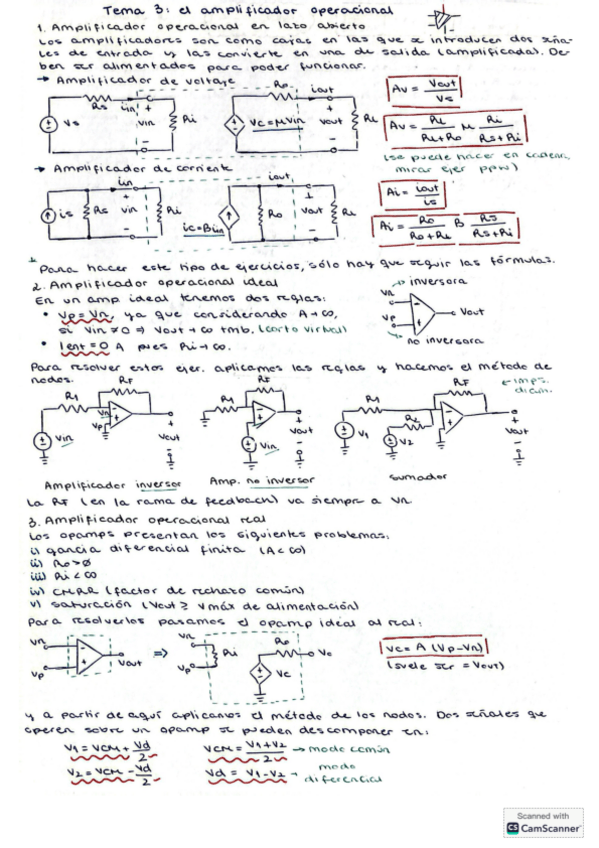 Tema 3: el amplificador operacional
1. Amplificador operacional en lazo abierto
Los amplificadores son como cajas en las que se introducen dos seña-
les de entrada y las convierte en una de salida (amplificada). De-
ben ser alimentados para poder funcionar.
→ Amplificador de voltaje
Rs iin + Ro iout
Vs Vin Ri Vc=μVin Vout RL
Av = Vout / Vs
Av = RL / (RL+Ro) μ Ri / (Rs+Ri)
(se puede hacer en cadena,
mirar ejer pptx)
→ Amplificador de corriente
iin iout
is Rs Vin Ri ic=βiin Ro Vout RL
Ai = iout / is
Ai = Ro / (Ro+RL) β Rs / (Rs+Ri)
Para hacer este tipo de ejercicios, sólo hay que seguir las fórmulas.
2. Amplificador operacional ideal
En un amp ideal tenemos dos reglas:
• Vp=Vn, ya que considerando A→∞,
si Vin≠0 ⇒ Vout→∞ tmb. (corto virtual)
• Ient=0 A pues Ri→∞.
inversora
Vn
Vp Vout
no inversora
Para resolver estos ejer. aplicamos las reglas y hacemos el método de
nodos.
R1 RF Vn Vp Vin Vout
R1 RF Vin Vout
R1 R2 RF V1 V2 Vout
Amplificador inversor Amp. no inversor Sumador
La RF (en la rama de feedback) va siempre a Vn
3. Amplificador operacional real
Los opamps presentan los siguientes problemas:
i) ganancia diferencial finita (A<∞)
ii) Ro>0
iii) Ri<∞
iv) CMRR (factor de rechazo común)
v) saturación (Vout ≥ Vmáx de alimentación)
Para resolverlos pasamos el opamp ideal al real:
Vn Vp Vout ⇒ Vn Vp Ri Ro Vc Vc
Vc = A (Vp-Vn)
(suele ser = Vout)
y a partir de aquí aplicamos el método de los nodos. Dos señales que
operen sobre un opamp se pueden descomponer en:
V1 = VCM + Vd/2 VCM = V1+V2 / 2 → modo común
V2 = VCM - Vd/2 Vd = V1-V2 → modo
diferencial
Scanned with
CS CamScanner